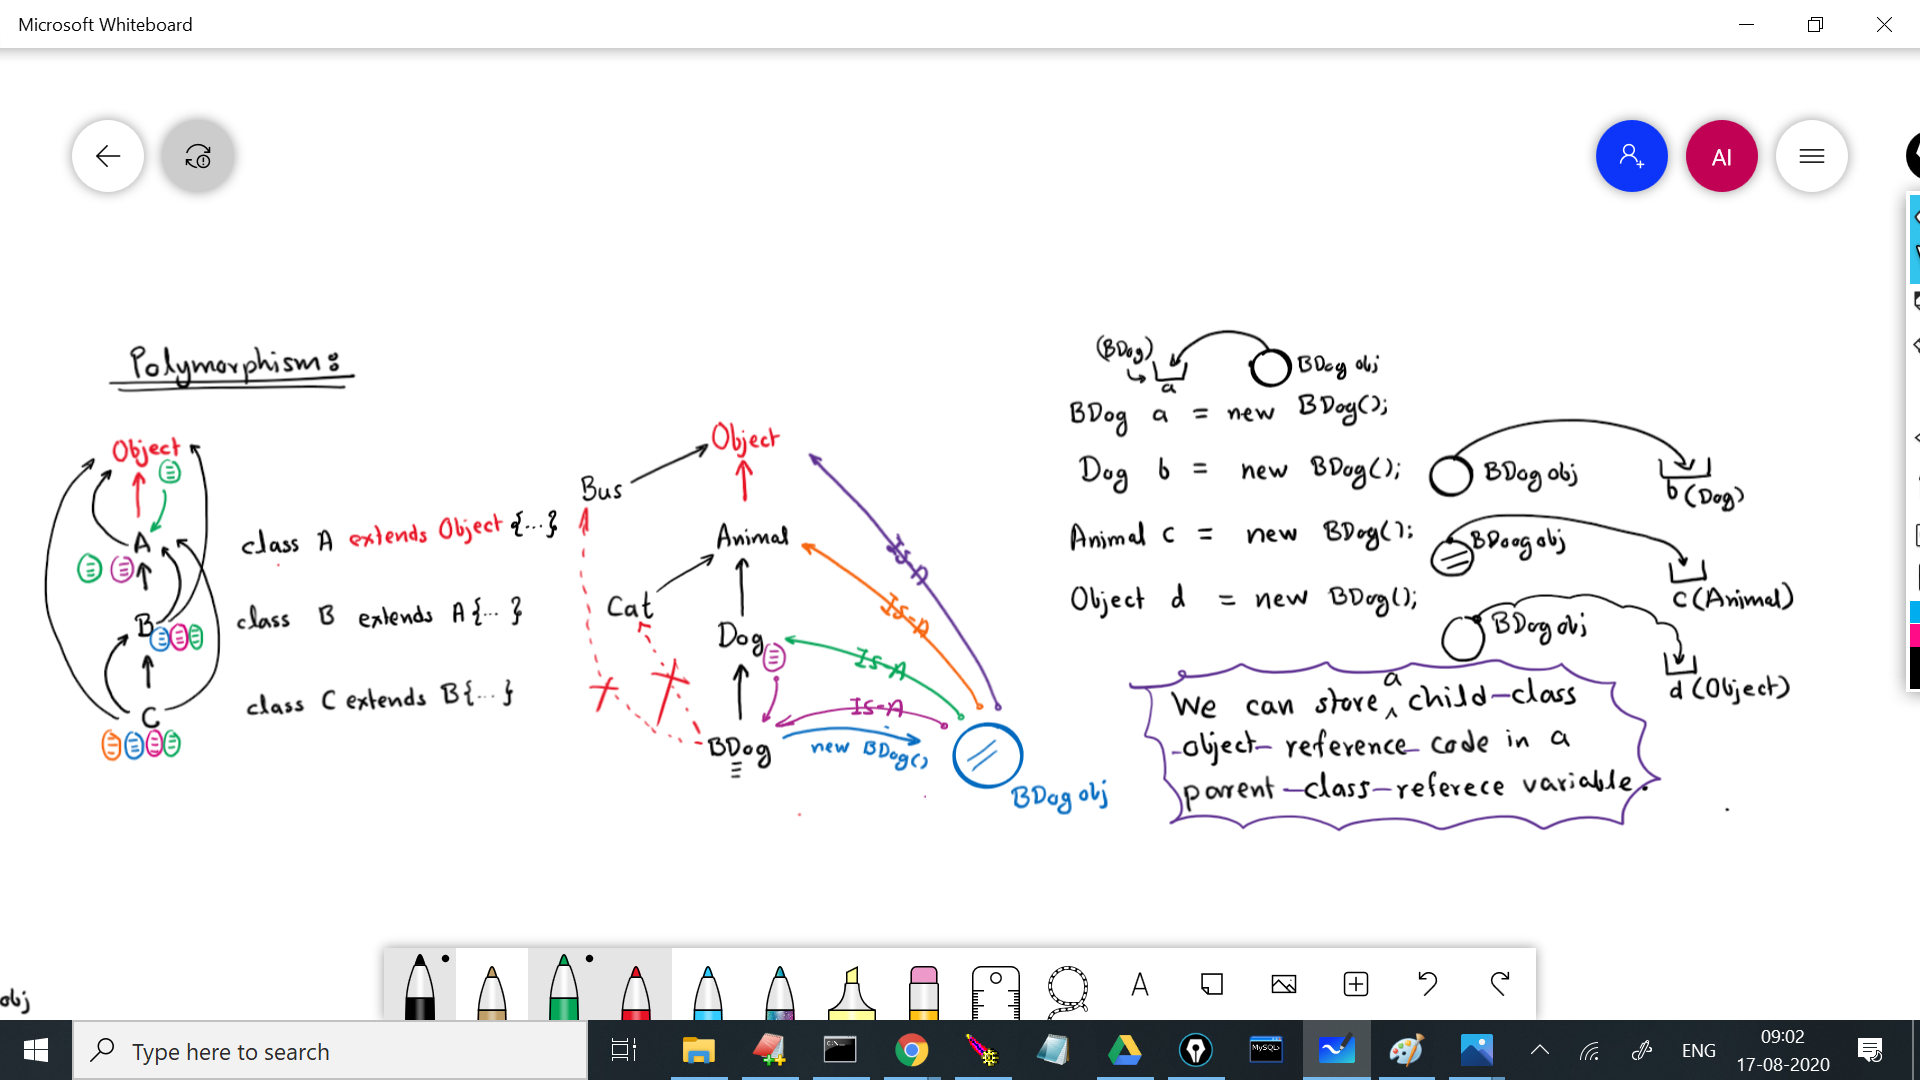 Microsoft Whiteboard
AI
Polymorphism:
Object
A
B
C
class A extends Object {...}
class B extends A{... }
class C extends B{...}
Object
Bus
Animal
Cat
Dog
BDog
Is-A
Is-A
Is-A
Is-A
new BDog()
BDog obj
(BDog)
a
BDog obj
BDog a = new BDog();
Dog b = new BDog();
BDog obj
b (Dog)
Animal c = new BDog();
BDoog obj
c (Animal)
Object d = new BDog();
BDog obj
d (Object)
We can store a child-class
-object- reference- code in a
parent-class-referece variable.
obj
A
Type here to search
MySQL
ENG
09:02
17-08-2020